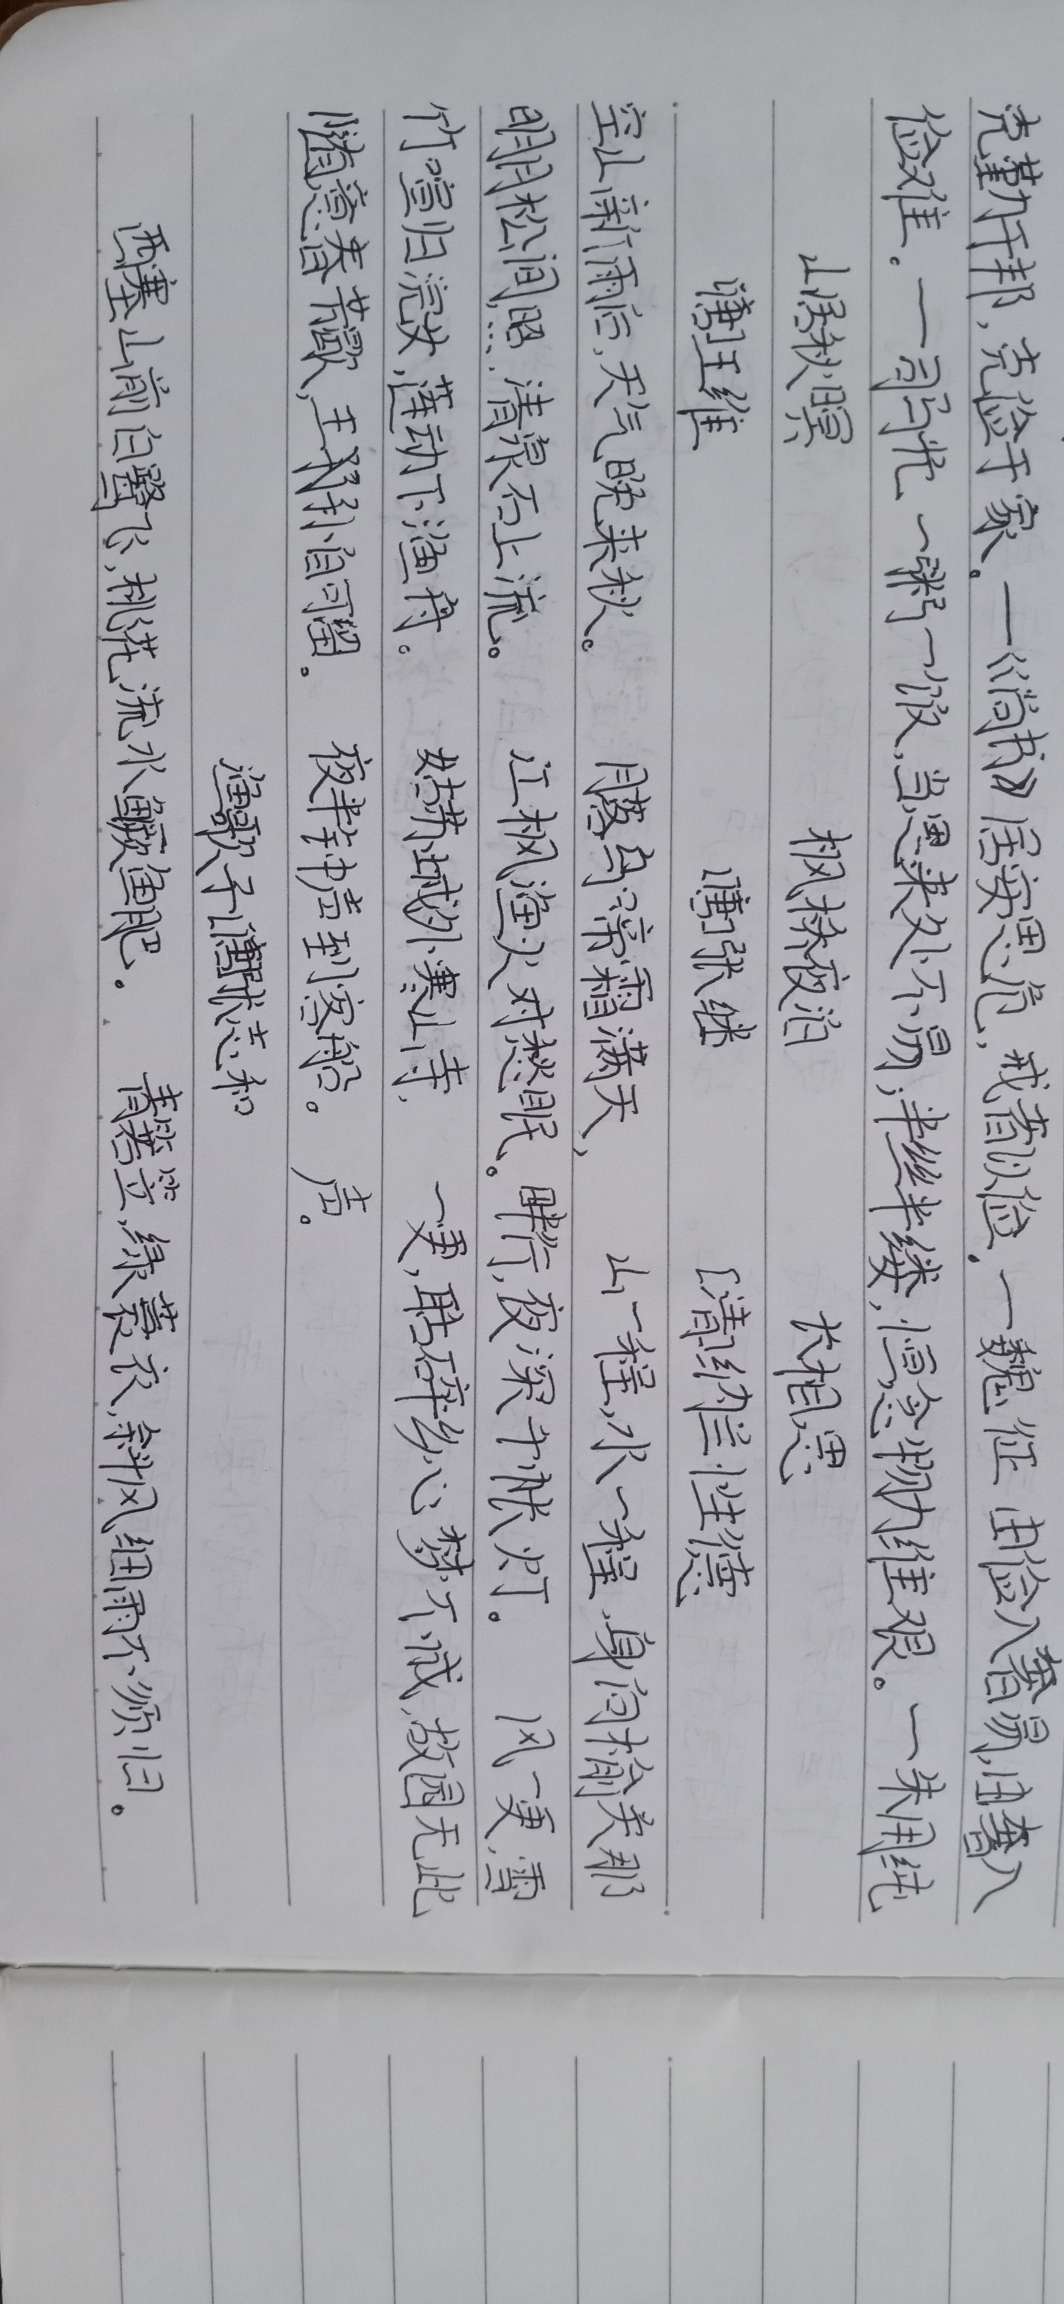 克勤于邦,克俭于家。—《尚书》居安思危,戒奢以俭.一魏征 由俭入奢易,由奢入
俭难。一司马光 一粥一饭,当思来处不易;半丝半缕,恒念物力维艰。一朱用纯
山居秋暝 枫桥夜泊 长相思
唐王维 唐张继 [清]纳兰性德
空山新雨后,天气晚来秋。 月落乌啼霜满天, 山一程,水一程,身向榆关那
明月松间照,…清泉石上流。 江枫渔火对愁眠。畔行,夜深千帐灯。 风一更,雪
竹喧归浣女,莲动下渔舟。 姑苏城外寒山寺, 一更,聒碎乡心梦不成,故园无此
随意春芳歇,王孙自可留。 夜半钟声到客船。 声。
渔歌子[唐]张志和
西塞山前白鹭飞,桃花流水鳜鱼肥。 青箬笠,绿蓑衣,斜风细雨不须归。